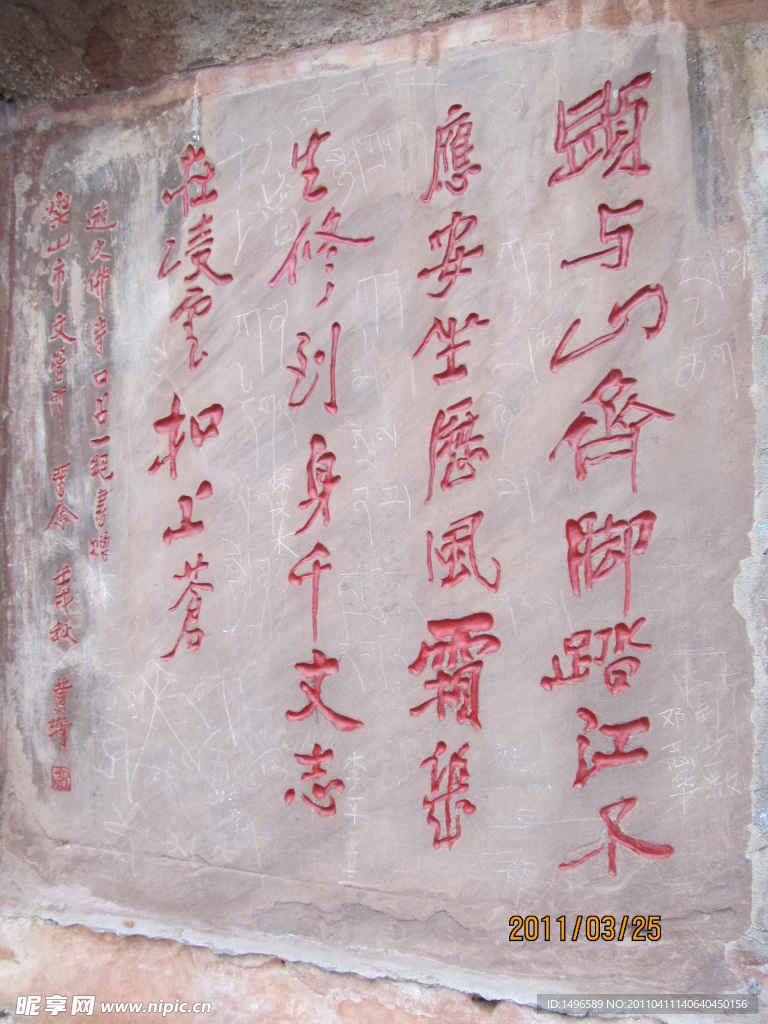 頭与山齊脚踏江不
應安坐歷風霜望
生修到身千丈志
在凌雲扣上蒼
遊大佛寺口占一絕書贈
樂山市文管所 留念 壬戌秋
2011/03/25
昵享网 www.nipic.cn
ID:1496589 NO:20110411140640450156